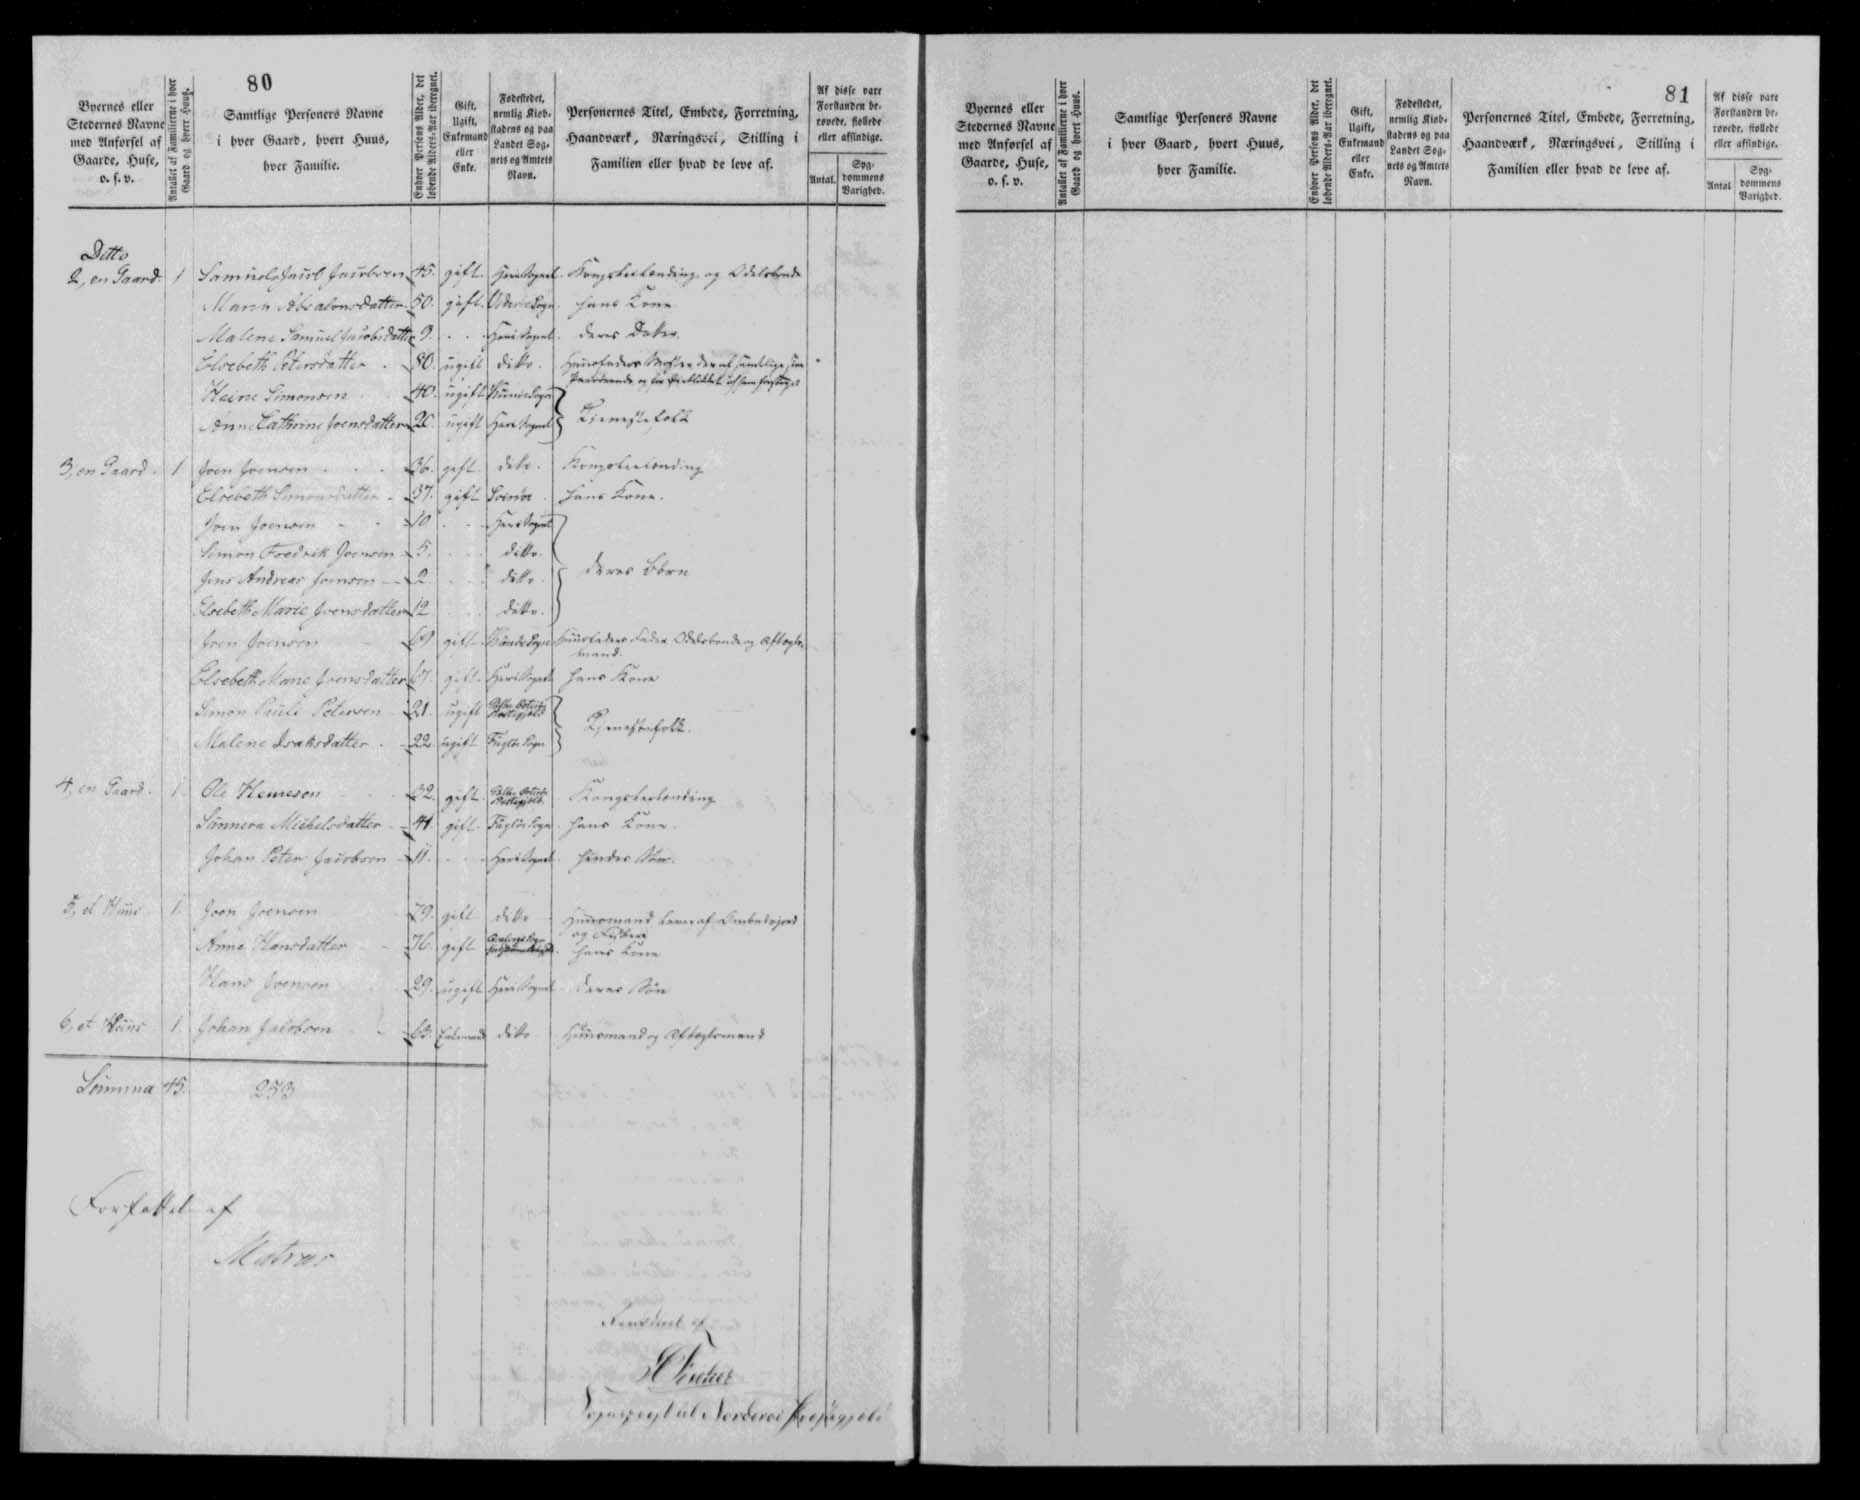 80
Byernes eller
Stedernes Navne
med Anførsel af
Gaarde, Huse,
o. s. v.
Antallet af Familierne i hver
Gaard og hvert Huus.
Samtlige Personers Navne
i hver Gaard, hvert Huus,
hver Familie.
Enhver Persons Alder, det
løbende Alders-Aar iberegnet.
Gift,
Ugift,
Enkemand
eller
Enke.
Fødestedet,
nemlig Kiøb-
stadens og paa
Landet Sog-
nets og Amtets
Navn.
Personernes Titel, Embede, Forretning,
Haandværk, Næringsvei, Stilling i
Familien eller hvad de leve af.
Af disse vare
Forstanden be-
røvede, fiollede
eller afsindige.
Antal.
Syg-
dommens
Varighed.
Ditto
2, en Gaard. 1 Samuel Jacob Jacobsen 45. gift. Heri Sognet. Kongsfæstending og Odelsbonde
Maren Absalonsdatter 50. gift. hans Kone
Malene Samuel Jacobsdatter 9. Heri Sognet. deres Datter.
Elsebeth Petersdatter 80. ugift ditto.
Heine Simonsen 40. ugift
Anne Cathrine Joensdatter 20. ugift Heri Sognet Tjenestefolk
3, en Gaard. 1 Joen Joensen 36. gift. ditto. Kongsfæstending
Elsebeth Simonsdatter 37. gift hans Kone.
Joen Joensen 10 Heri Sognet
Simon Fredrik Joensen 5. ditto.
Jens Andreas Joensen 2. ditto. deres Børn
Elsebeth Marie Joensdatter 12 ditto.
Joen Joensen gift Huusfaders Fader Odelsbonde og Aftægts-
mand.
Elsebeth Marie Joensdatter 67. gift. Heri Sognet hans Kone
Simon Pauli Petersen 21. ugift
Malene Isaksdatter 22. ugift Fuglø Sogn Tjenestefolk.
4, en Gaard. 1. Ole 32. gift. Kongsfæstending
Sunneva Michelsdatter 41. gift. Fuglø Sogn hans Kone.
Johan Peter Jacobsen 11. Heri Sognet hendes Søn.
5, et Huus 1. Joen Joensen 79. gift ditto Huusmand lever af
og Fiskeri
Anne Hansdatter 76. gift hans Kone
Hans Joensen 29. ugift Heri Sognet deres Søn
6, et Huus 1. Johan Jacobsen 63. Enkemand ditto Huusmand og Aftægtsmand
Summa 45. 253
Forfattet af
Matras
til Norderøe Præstegjeld
81
Byernes eller
Stedernes Navne
med Anførsel af
Gaarde, Huse,
o. s. v.
Antallet af Familierne i hver
Gaard og hvert Huus.
Samtlige Personers Navne
i hver Gaard, hvert Huus,
hver Familie.
Enhver Persons Alder, det
løbende Alders-Aar iberegnet.
Gift,
Ugift,
Enkemand
eller
Enke.
Fødestedet,
nemlig Kiøb-
stadens og paa
Landet Sog-
nets og Amtets
Navn.
Personernes Titel, Embede, Forretning,
Haandværk, Næringsvei, Stilling i
Familien eller hvad de leve af.
Af disse vare
Forstanden be-
røvede, fiollede
eller afsindige.
Antal
Syg-
dommens
Varighed.